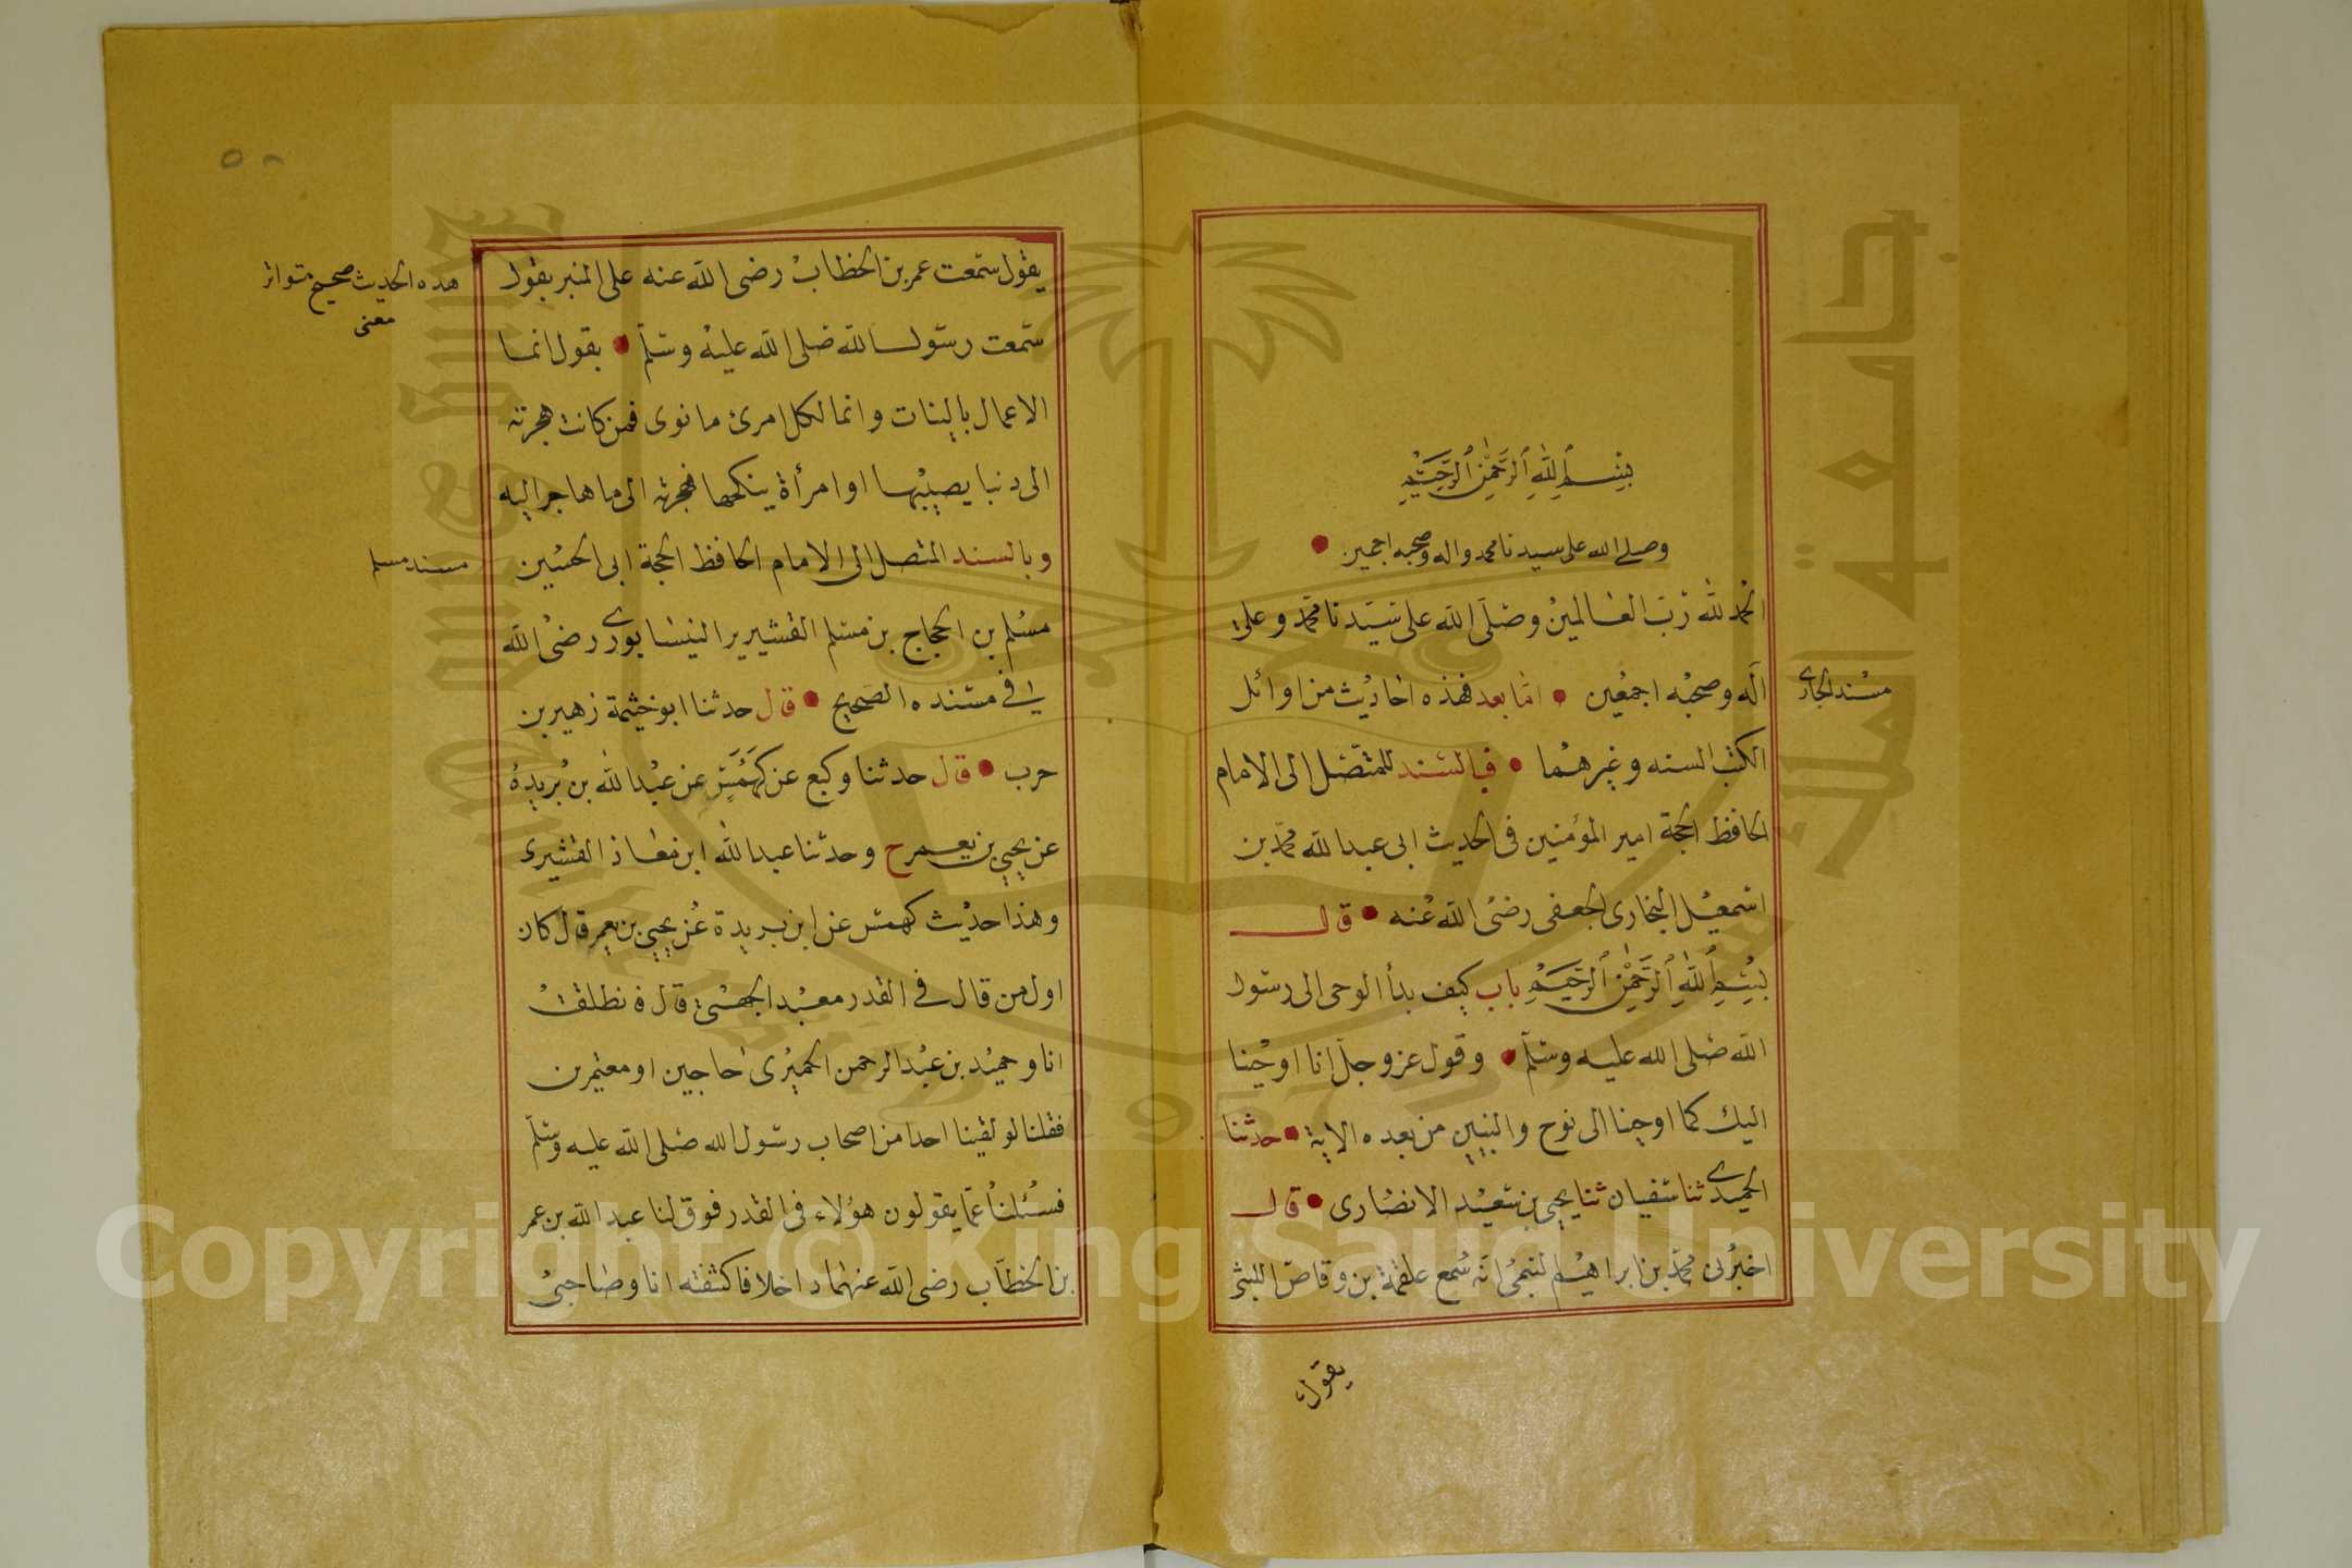 بِسْمِ ٱللَّهِ ٱلرَّحْمَٰنِ ٱلرَّحِيمِ
وصلى الله على سيدنا محمد واله وصحبه اجمعين
الحمد لله رب العالمين وصلى الله على سيدنا محمد وعلى
آله وصحبه اجمعين • اما بعد فهذه احاديث من اوائل
مسند البخاري
الكتب السته وغيرهما • فبالسند المتصل الى الامام
الحافظ الحجة امير المؤمنين فى الحديث ابى عبد الله محمد بن
اسمعيل البخارى الجعفى رضى الله عنه • قال
بِسْمِ ٱللَّهِ ٱلرَّحْمَٰنِ ٱلرَّحِيمِ باب كيف بدأ الوحى الى رسول
الله صلى الله عليه وسلم • وقول عز وجل انا اوحينا
اليك كما اوحينا الى نوح والنبيين من بعده الاية • حدثنا
الحميدي ثنا سفيان ثنا يحيى بن سعيد الانصارى • قال
اخبرنى محمد بن ابراهيم لتيمى انه سمع علقمة بن وقاص الليثى
يقول
يقول سمعت عمر بن الخطاب رضى الله عنه على المنبر يقول
هده الحديث صحيح متواتر
معنى
سمعت رسول الله صلى الله عليه وسلم • يقول انما
الاعمال بالنيات وانما لكل امرئ ما نوى فمن كانت هجرته
الى دنيا يصيبها او امرأة ينكحها فهجرته الى ما هاجر اليه
وبالسند المتصل الى الامام الحافظ الحجة ابى الحسين
مسند مسلم
مسلم بن الحجاج بن مسلم القشيرير النيسابوري رضى الله
فى مسنده الصحيح • قال حدثنا ابو خيثمة زهير بن
حرب • قال حدثنا وكيع عن كهمس عن عبد الله بن بريدة
عن يحيى بن يعمر ح وحدثنا عبد الله ابن معاذ القشيرى
وهذا حديث كهمس عن ابن بريدة عن يحيى بن يعمر قال كان
اول من قال في القدر معبد الجهنى قال فنطلقت
انا وحميد بن عبد الرحمن الحميرى حاجين او معتمرين
فقلنا لو لقينا احدا من اصحاب رسول الله صلى الله عليه وسلم
فسئلنا عما يقولون هؤلاء فى القدر فوفق لنا عبد الله بن عمر
بن الخطاب رضى الله عنهما داخلا فاكتنفته انا وصاحبى
Copyright © King Saud University